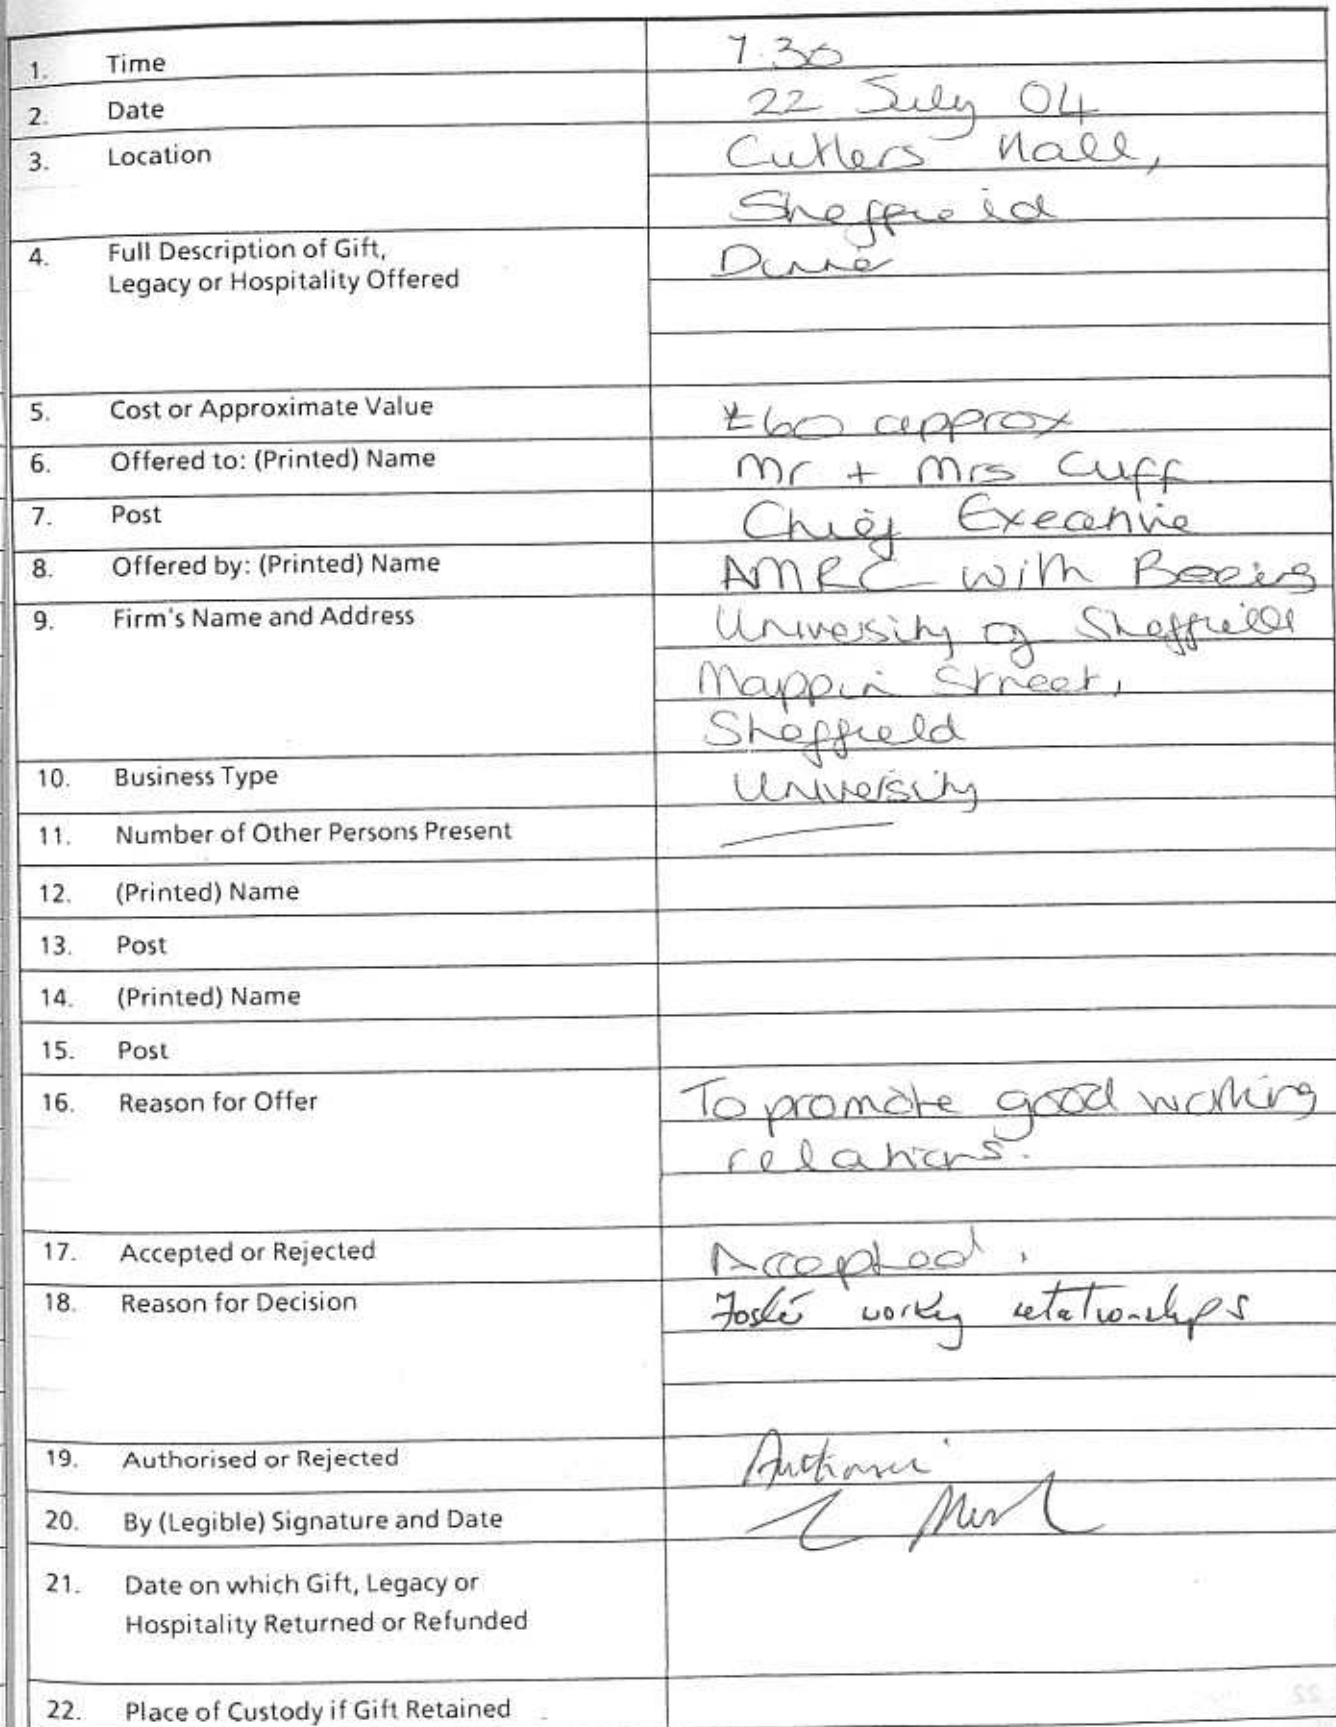 1. Time 7.30
2. Date 22 July 04
3. Location Cutlers Hall,
Sheffield
4. Full Description of Gift, Dinner
Legacy or Hospitality Offered
5. Cost or Approximate Value £60 approx
6. Offered to: (Printed) Name Mr + Mrs Cuff
7. Post Chief Executive
8. Offered by: (Printed) Name AMRC with Boeing
9. Firm's Name and Address University of Sheffield
Mappin Street,
Sheffield
10. Business Type University
11. Number of Other Persons Present
12. (Printed) Name
13. Post
14. (Printed) Name
15. Post
16. Reason for Offer To promote good working
relations.
17. Accepted or Rejected Accepted.
18. Reason for Decision Foster working relationships
19. Authorised or Rejected
20. By (Legible) Signature and Date
21. Date on which Gift, Legacy or
Hospitality Returned or Refunded
22. Place of Custody if Gift Retained